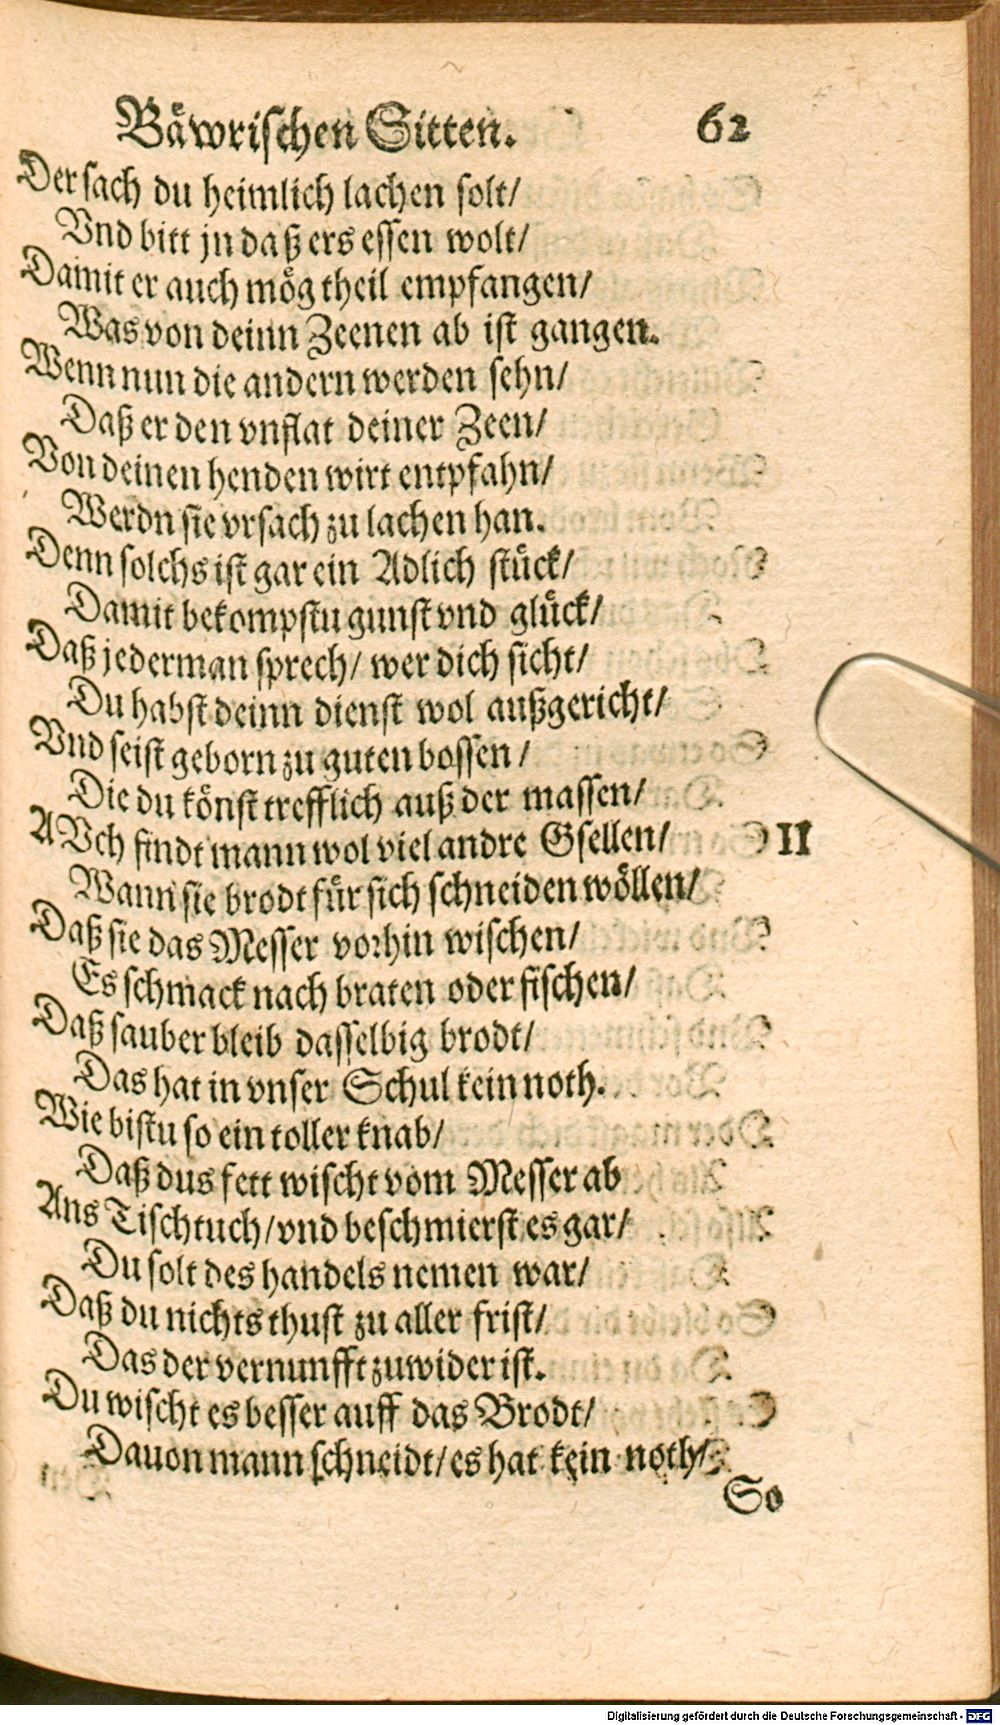 Bäwrischen Sitten. 62
Der sach du heimlich lachen solt/
Vnd bitt jn daß ers essen wolt/
Damit er auch mög theil empfangen/
Was von deinn Zeenen ab ist gangen.
Wenn nun die andern werden sehn/
Daß er den vnflat deiner Zeen/
Von deinen henden wirt entpfahn/
Werdn sie vrsach zu lachen han.
Denn solchs ist gar ein Adlich stück/
Damit bekompstu gunst vnd glück/
Daß jederman sprech/ wer dich sicht/
Du habst deinn dienst wol außgericht/
Vnd seist geborn zu guten bossen/
Die du könst trefflich auß der massen/
AVch findt mann wol viel andre Gsellen/ II
Wann sie brodt für sich schneiden wöllen/
Daß sie das Messer vorhin wischen/
Es schmack nach braten oder fischen/
Daß sauber bleib dasselbig brodt/
Das hat in vnser Schul kein noth.
Wie bistu so ein toller knab/
Daß dus fett wischt vom Messer ab
Ans Tischtuch/ vnd beschmierst es gar/
Du solt des handels nemen war/
Daß du nichts thust zu aller frist/
Das der vernunfft zuwider ist.
Du wischt es besser auff das Brodt/
Dauon mann schneidt/ es hat kein noth/
So
Digitalisierung gefördert durch die Deutsche Forschungsgemeinschaft - DFG